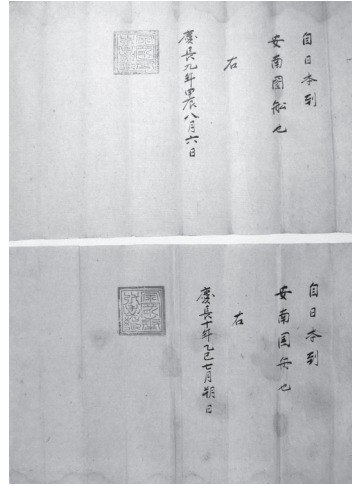 自日本到
安南國舩也
右
慶長九年甲辰八月六日
自日本到
安南国舟也
右
慶長十年乙巳七月朔日